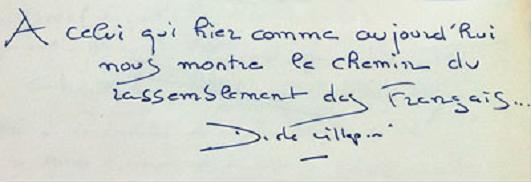 A celui qui hier comme aujourd'hui
nous montre le chemin du
rassemblement des Français...
D. de Villepin